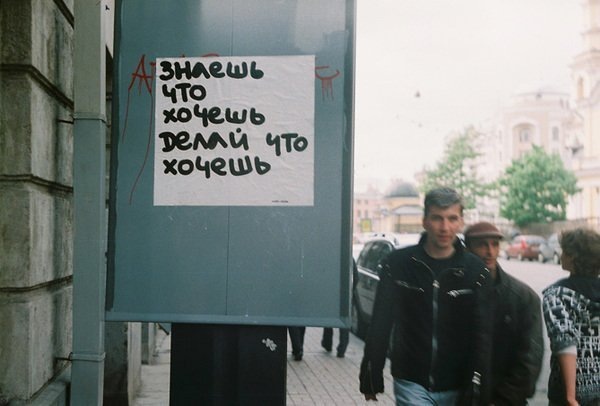 знаешь
что
хочешь
делай что
хочешь